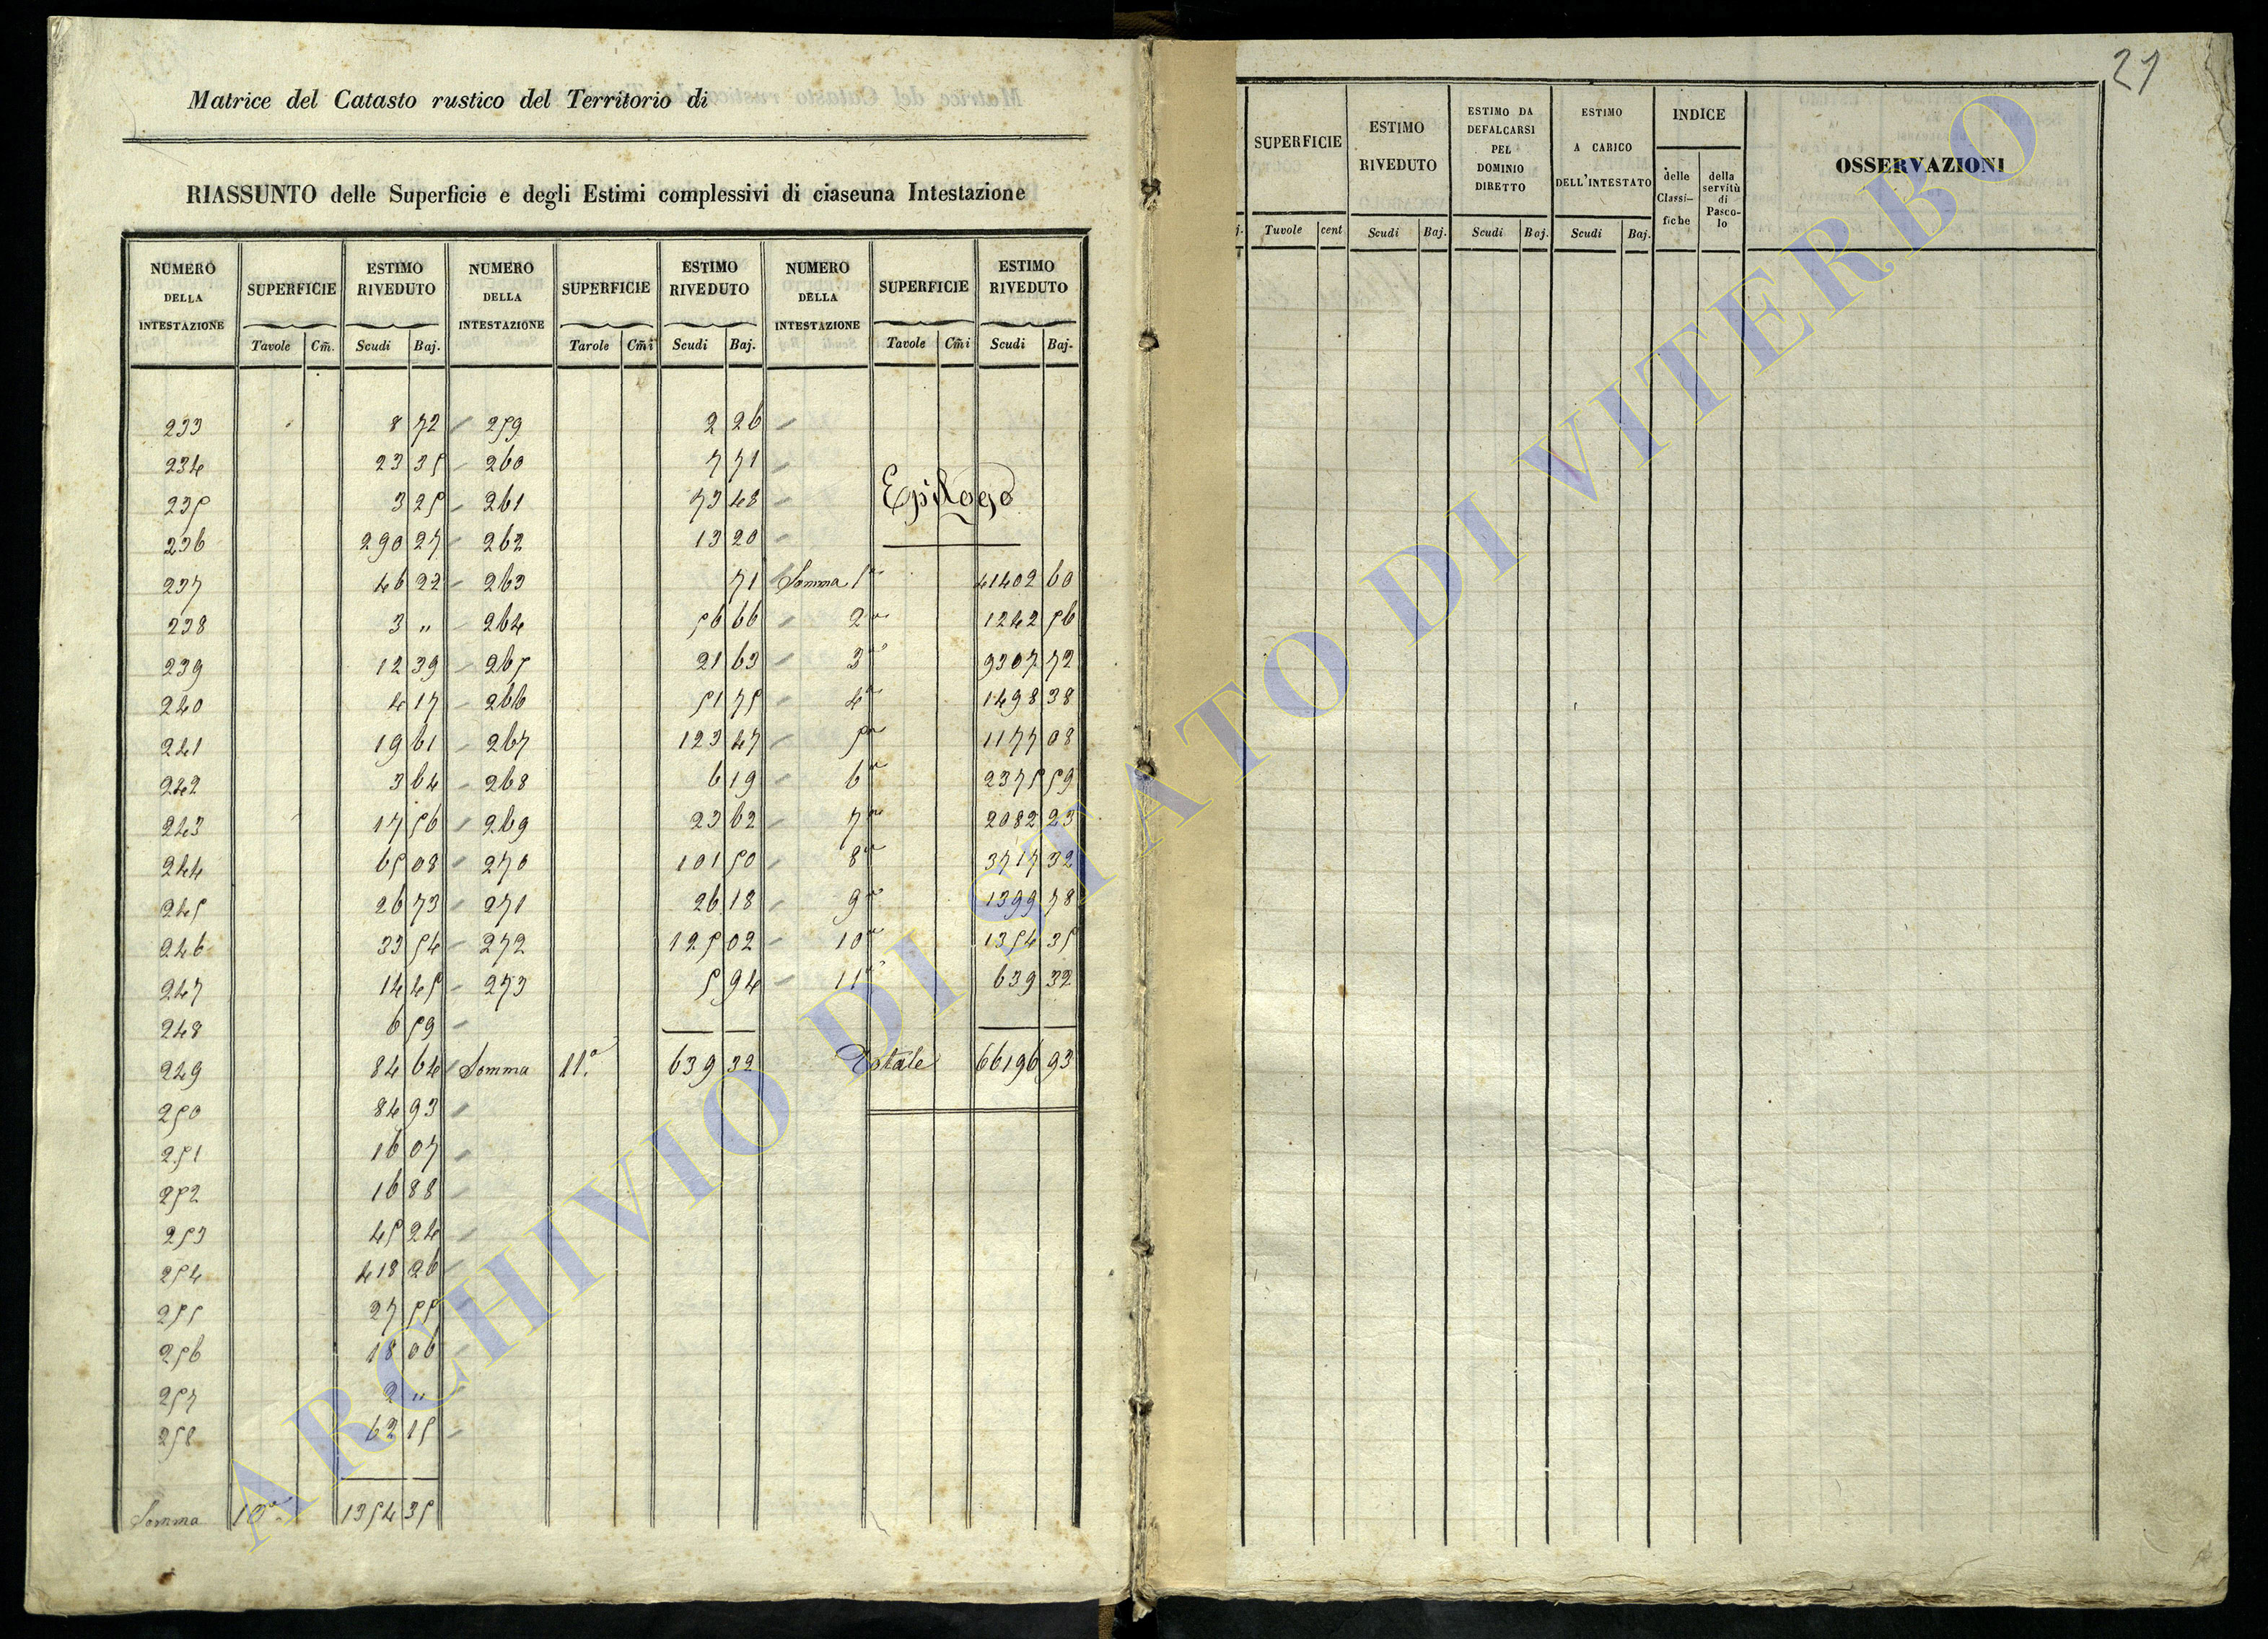 Matrice del Catasto rustico del Territorio di
RIASSUNTO delle Superficie e degli Estimi complessivi di ciaseuna Intestazione
NUMERO DELLA INTESTAZIONE SUPERFICIE ESTIMO RIVEDUTO NUMERO DELLA INTESTAZIONE SUPERFICIE ESTIMO RIVEDUTO NUMERO DELLA INTESTAZIONE SUPERFICIE ESTIMO RIVEDUTO
Tavole Cm̃. Scudi Baj. Tarole Cm̃i Scudi Baj. Tavole Cm̃i Scudi Baj.
233 8 72 259 2 26
234 23 35 260 7 71
235 3 25 261 73 48 Epilogo
236 290 27 262 13 20
237 46 22 263 71 Somma 1a 41402 60
238 3 " 264 56 66 2a 1242 56
239 12 39 265 21 63 3a 9307 72
240 4 17 266 51 75 4a 1498 38
241 19 61 267 123 47 5a 1177 08
242 3 64 268 6 19 6a 2375 59
243 17 56 269 23 62 7a 2082 23
244 65 08 270 101 50 8a 3717 32
245 26 73 271 26 18 9a 1399 78
246 33 54 272 125 02 10a 1354 35
247 14 45 273 5 94 11a 639 32
248 6 59
249 84 64 Somma 11.a 639 32 Totale 66196 93
250 84 93
251 16 07
252 16 88
253 45 24
254 418 26
255 27 55
256 18 06
257 2 "
258 62 15
Somma 10a 1354 35
21
SUPERFICIE ESTIMO RIVEDUTO ESTIMO DA DEFALCARSI PEL DOMINIO DIRETTO ESTIMO A CARICO DELL'INTESTATO INDICE OSSERVAZIONI
delle Classi-fiche della servitù di Pasco-lo
j. Tuvole cent Scudi Baj. Scudi Baj. Scudi Baj.
ARCHIVIO DI STATO DI VITERBO